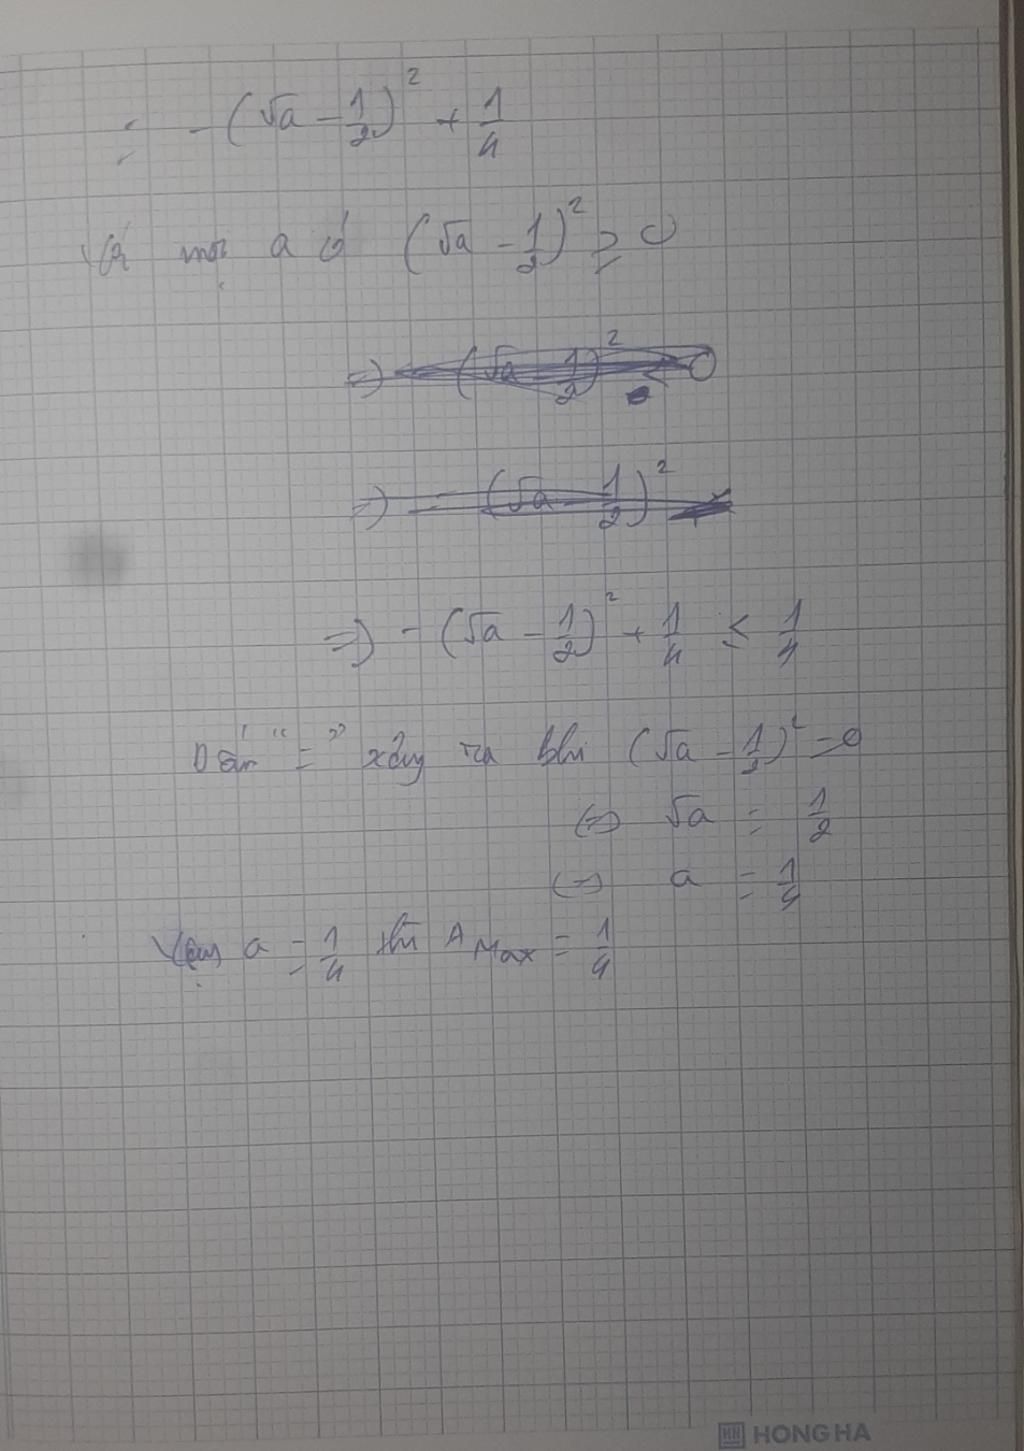 = -(√a - 1/2)² + 1/4
Với mọi a có (√a - 1/2)² ≥ 0
=> - (√a - 1/2)² + 1/4 ≤ 1/4
Dấu " = " xảy ra khi (√a - 1/2)² = 0
<=> √a = 1/2
<=> a = 1/4
Vậy a = 1/4 thì A Max = 1/4
HH HONG HA